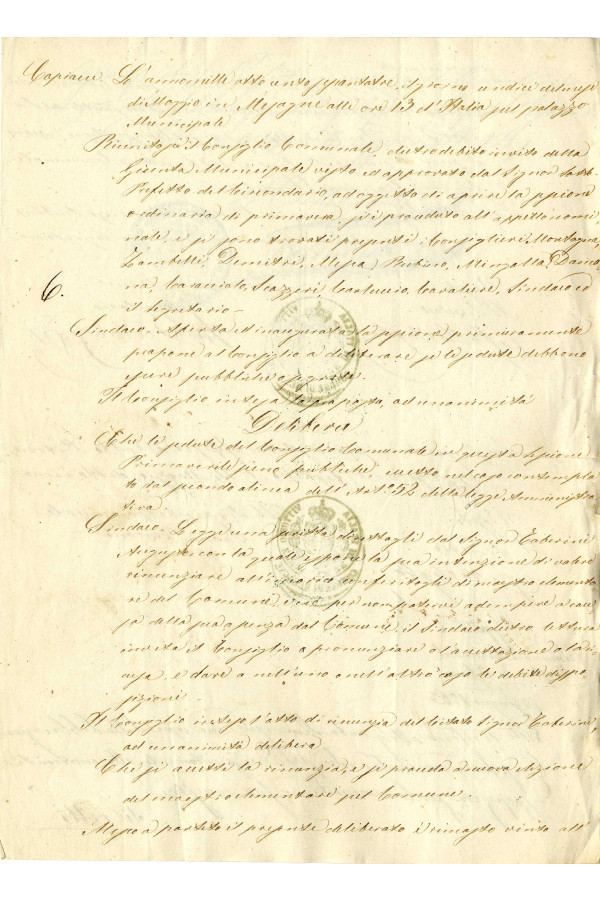 L'anno mille otto cento sessantatre, il giorno undici del mese
di Maggio in Mesagne alle ore 13 d'Italia sul palazzo
Municipale
Riunitosi il Consiglio Comunale, dietro debito invito della
Giunta Municipale visto ed approvato dal Signor Sotto
Prefetto del Circondario, ad oggetto di aprire la sessione
ordinaria di primavera, si è proceduto all'appello nomi
nale, e si sono trovati presenti i Consiglieri, Montagna,
Zambelli, Demitri, Mesia, Rubino, Mingolla,
Caracciolo, Scazzeri, Cavaliere, Sindaco ed
il Segretario —
6.
Sindaco. Aperta ed inaugurata la sessione, primieramente
propone al Consiglio a deliberare se le sedute debbono
essere pubbliche o segrete.
Il Consiglio intesa la proposta, ad unanimità
Delibera
Che le sedute del Consiglio Comunale in questa sessione
Primaverile sieno pubbliche, eccetto nel caso contempla
to dal secondo alinea dell'Art.° 52 della legge Amministra
tiva.
Sindaco. Legge una scritta direttagli dal Signor Taberini
Augusto con la quale espone la sua intenzione di volere
rinunziare all'incarico conferitogli di maestro elementa
re del Comune, e ciò per non potervi adempire a cau
sa della sua assenza dal Comune, il Sindaco dietro lettura
invita il Consiglio a pronunziare o l'accettazione o la
e dare o nell'uno o nell'altro caso le debite dispo
sizioni.
Il Consiglio inteso l'atto di rinunzia del citato Signor Taberini,
ad unanimità delibera
Che si accetti la rinunzia, e si proceda a nuova elezione
del maestro elementare pel Comune.
Messo a partito il presente deliberato è rimasto vinto all'